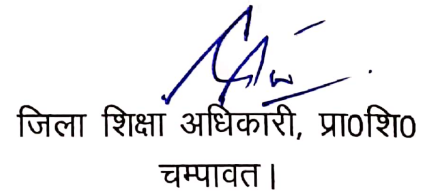 जिला शिक्षा अधिकारी, प्रा0शि0
चम्पावत।